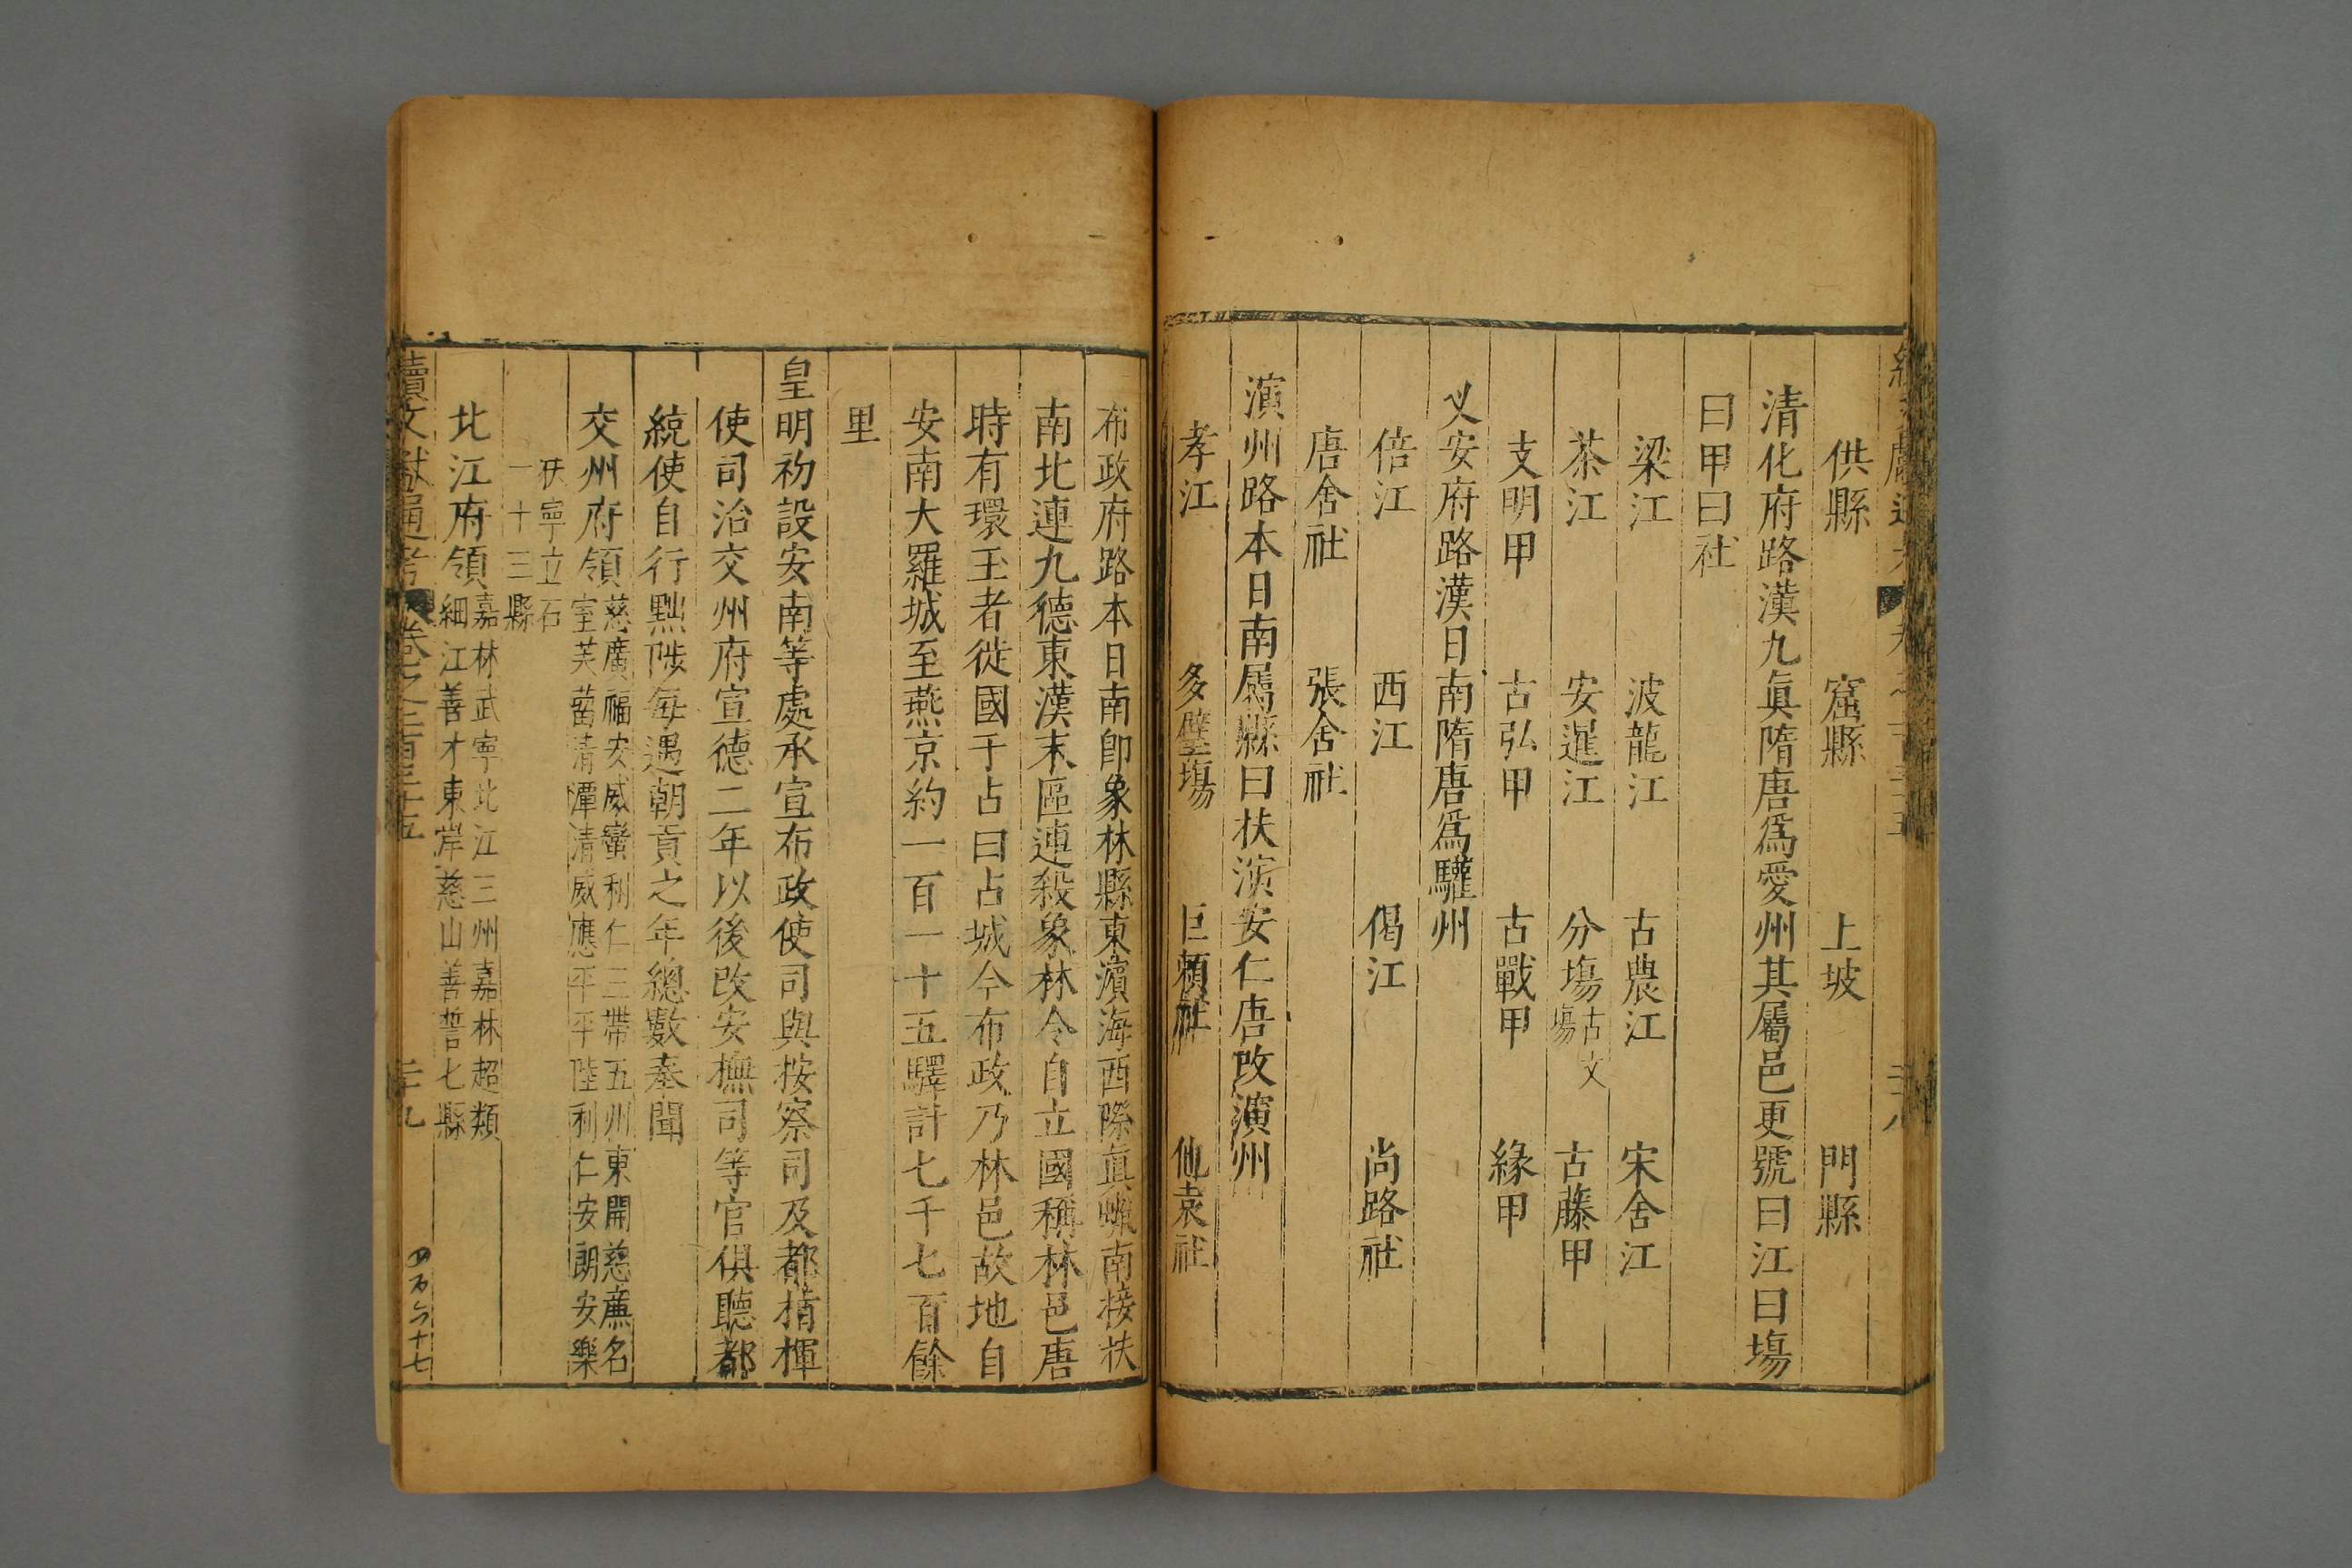 供縣　窟縣　上坡　門縣
清化府路漢九眞隋唐爲愛州其屬邑更號曰江曰場
曰甲曰社
梁江　波龍江　古農江　宋舍江
茶江　安暹江　分場古文場　古藤甲
支明甲　古弘甲　古戰甲　緣甲
乂安府路漢日南隋唐爲驩州
倍江　西江　偈江　尚路社
唐舍社　張舍社
演州路本日南屬縣曰扶演安仁唐改演州
孝江　多壁場　巨賴社　他袁社
布政府路本日南卽象林縣東濵海西際眞蠟南接扶
南北連九德東漢末區連殺象林令自立國稱林邑唐
時有環王者徙國于占曰占城今布政乃林邑故地自
安南大羅城至燕京約一百一十五驛計七千七百餘
里
皇明初設安南等處承宣布政使司與按察司及都指揮
使司治交州府宣德二年以後改安撫司等官俱聽都
統使自行黜陟每遇朝貢之年總數奏聞
交州府領慈廣福安威蠻利仁三帶五州東關慈亷名
室芙蒥清潭清威應平平陸利仁安朗安樂
扶寧立石
一十三縣
北江府領嘉林武寧北江三州嘉林超類
細江善才東岸慈山善誓七縣
續文獻通考　卷之二百三十五　二十九
四百六十七